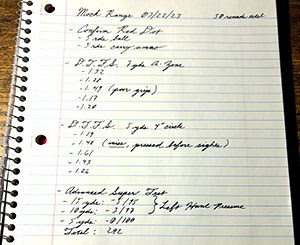 Mock Range 07/22/23 50 rounds total
- Confirm Red Dot
- 5 rds ball
- 5 rds carry ammo
- D.T.F.S. 7 yds A-Zone
- 1.32
- 1.28
- 1.49 (poor grip)
- 1.17
- 1.20
- D.T.F.S. 5 yds 4" circle
- 1.59
- 1.48 (miss, pressed before sights)
- 1.61
- 1.43
- 1.26
- Advanced Super Test
- 15 yds: -5/95
- 10 yds: -3/97 } Left Hand Pressure
- 5 yds: -0/100
Total: 292